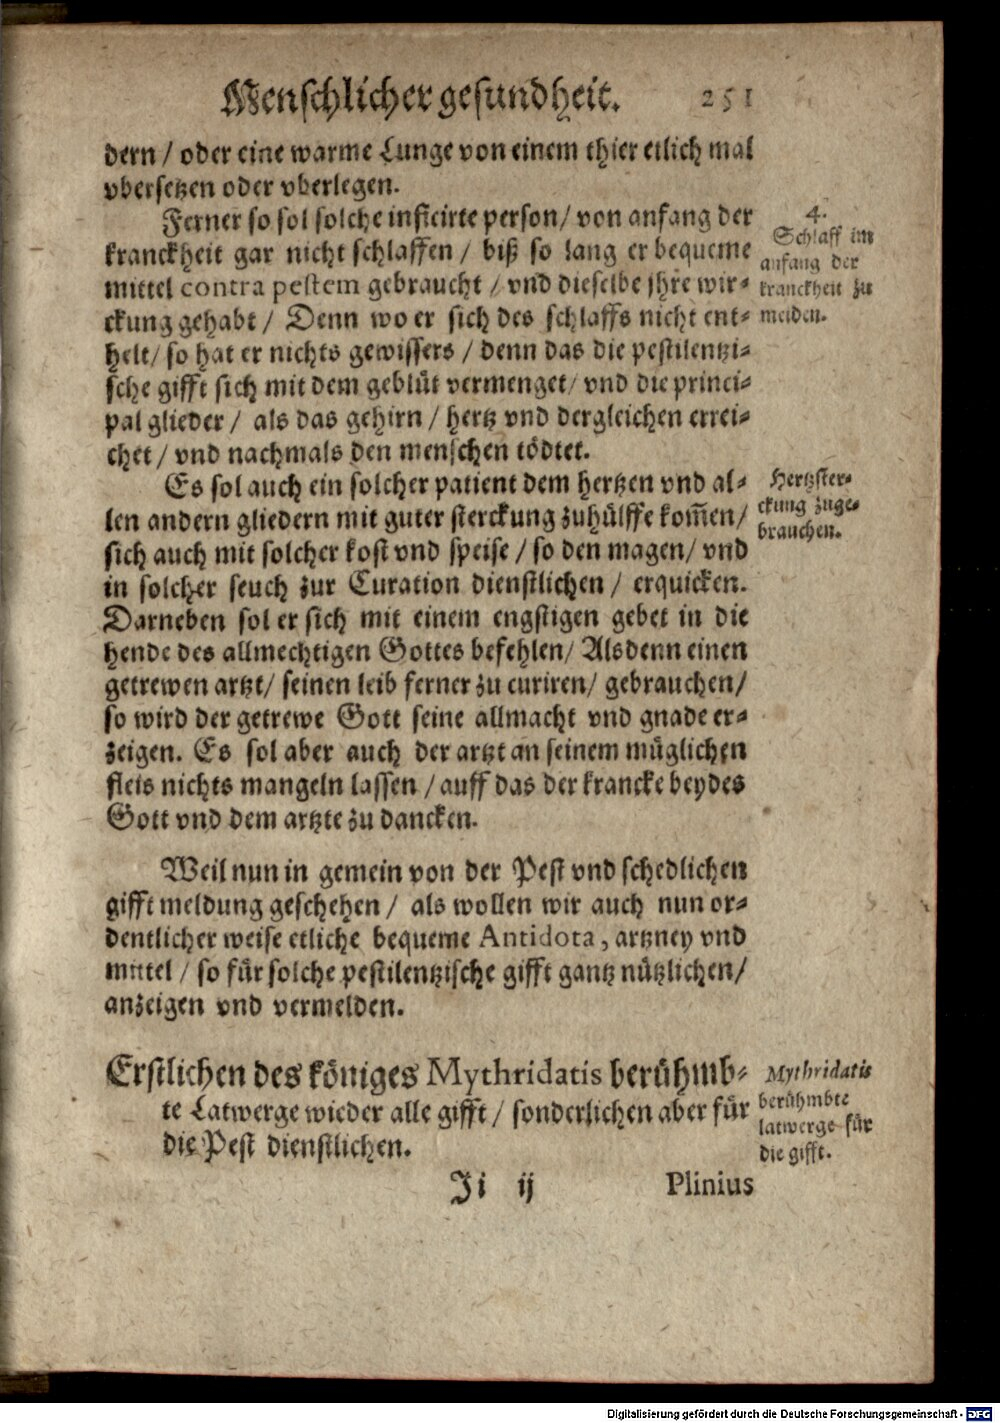 Menschlicher gesundheit. 251
dern / oder eine warme Lunge von einem thier etlich mal
vbersetzen oder vberlegen.
Ferner so sol solche inficirte person / von anfang der
kranckheit gar nicht schlaffen / biß so lang er bequeme
mittel contra pestem gebraucht / vnd dieselbe jhre wir-
ckung gehabt / Denn wo er sich des schlaffs nicht ent-
helt / so hat er nichts gewissers / denn das die pestilentzi-
sche gifft sich mit dem geblüt vermenget / vnd die princi-
pal glieder / als das gehirn / hertz vnd dergleichen errei-
chet / vnd nachmals den menschen tödtet.
4.
Schlaff im
anfang der
kranckheit zu
meiden.
Es sol auch ein solcher patient dem hertzen vnd al-
len andern gliedern mit guter sterckung zuhülffe kom̄en /
sich auch mit solcher kost vnd speise / so den magen / vnd
in solcher seuch zur Curation dienstlichen / erquicken.
Darneben sol er sich mit einem engstigen gebet in die
hende des allmechtigen Gottes befehlen / Alsdenn einen
getrewen artzt / seinen leib ferner zu curiren / gebrauchen /
so wird der getrewe Gott seine allmacht vnd gnade er-
zeigen. Es sol aber auch der artzt an seinem müglichen
fleis nichts mangeln lassen / auff das der krancke beydes
Gott vnd dem artzte zu dancken.
Hertzster-
ckung zuge-
brauchen.
Weil nun in gemein von der Pest vnd schedlichen
gifft meldung geschehen / als wollen wir auch nun or-
dentlicher weise etliche bequeme Antidota, artzney vnd
mittel / so für solche pestilentzische gifft gantz nützlichen /
anzeigen vnd vermelden.
Erstlichen des königes Mythridatis berühmb-
te Latwerge wieder alle gifft / sonderlichen aber für
die Pest dienstlichen.
Mythridatis
berühmbte
latwerge für
die gifft.
Ji ij Plinius
Digitalisierung gefördert durch die Deutsche Forschungsgemeinschaft - DFG